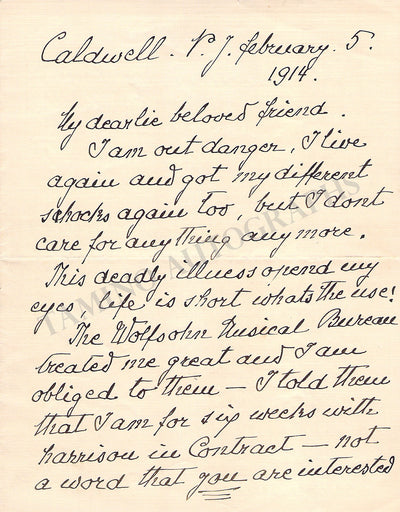 Caldwell. N.J. february. 5.
1914.
My dearlie beloved friend.
I am out danger, I live
again and got my different
schocks again too, but I dont
care for anything anymore.
This deadly illness opend my
eyes, life is short whats the use!
The Wolfsohn Musical Bureau
treated me great and I am
obliged to them — I told them
that I am for six weeks with
harrison in Contract — not
a word that you are interested
TAMINO AUTOGRAPHS